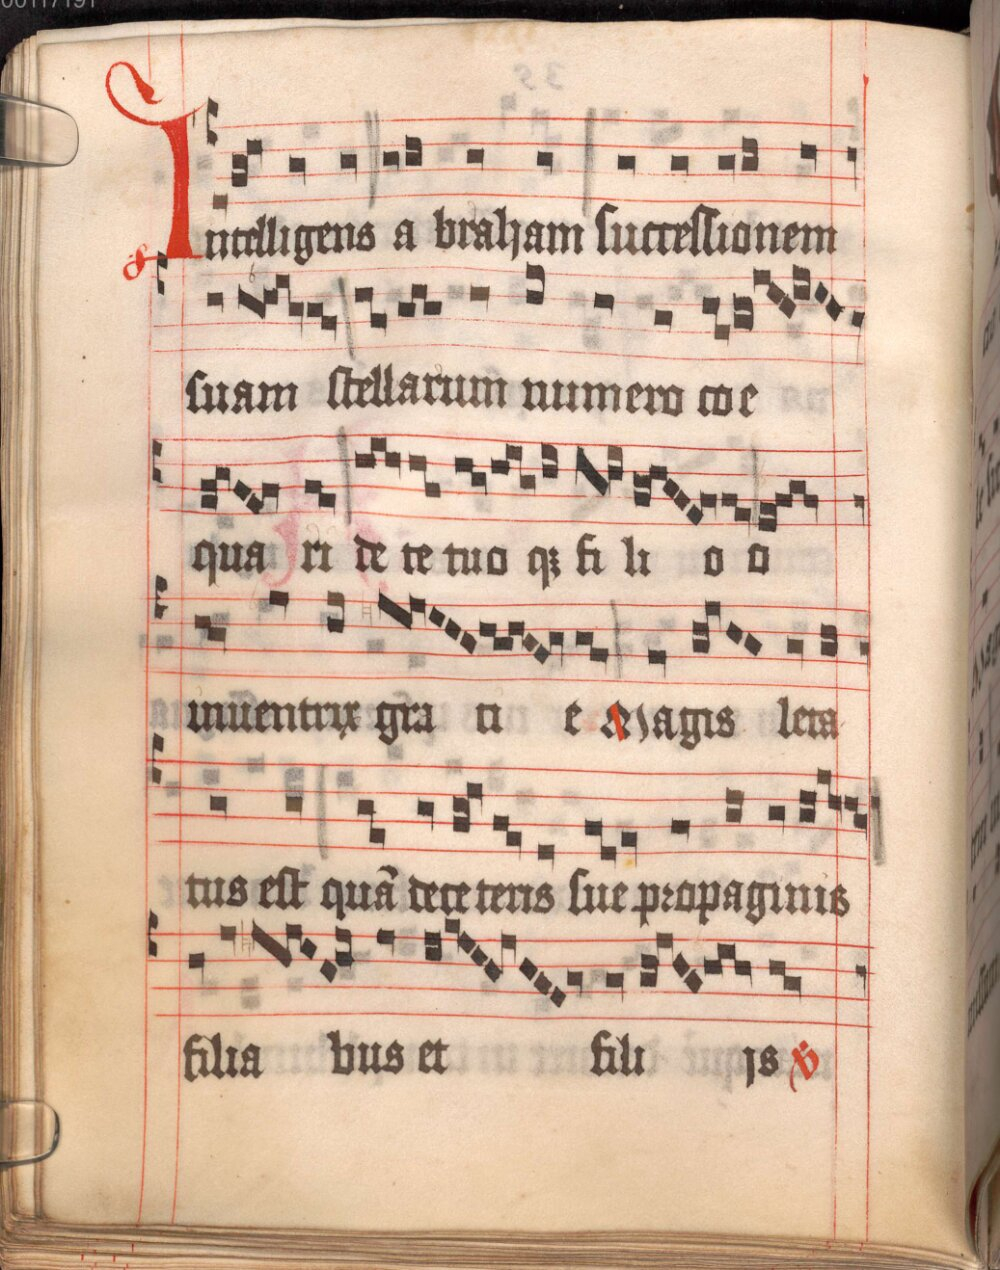 Intelligens a braham successionem
suam stellarum numero coe
qua ri de te tuo qȝ fi li o o
inuentrix gra ti e Magis leta
tus est quā de ce teris sue propaginis
filia bus et fili is ℣